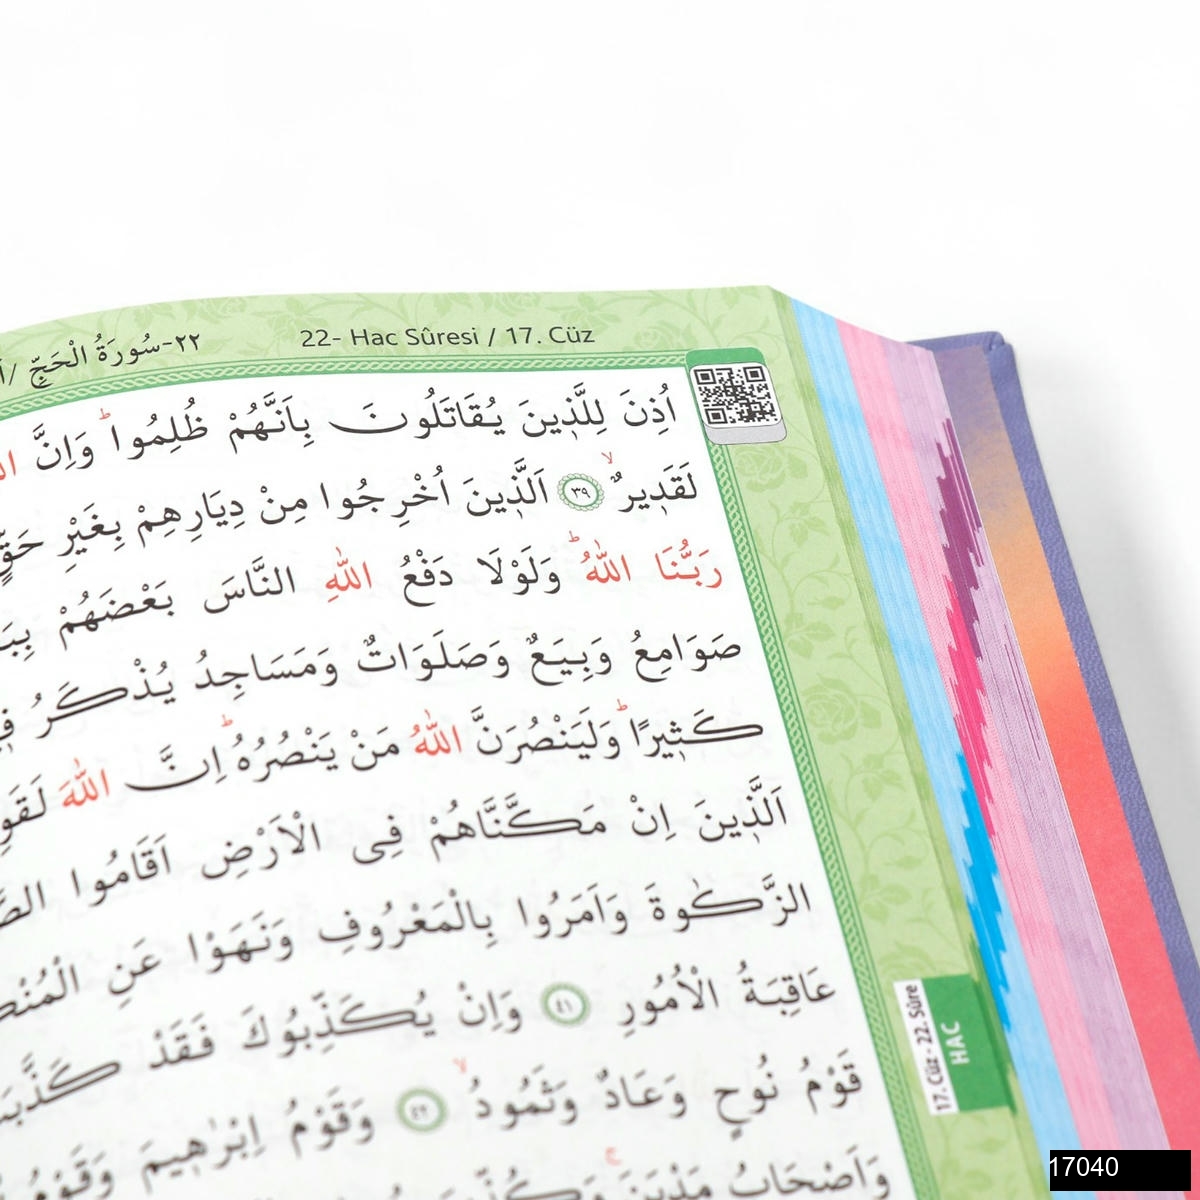 ٢٢-سُورَةُ الْحَجِّ /
22- Hac Sûresi / 17. Cüz
اُذِنَ لِلَّذ۪ينَ يُقَاتَلُونَ بِاَنَّهُمْ ظُلِمُواۜ وَاِنَّ
لَقَد۪يرٌۙ ﴿٣٩﴾ اَلَّذ۪ينَ اُخْرِجُوا مِنْ دِيَارِهِمْ بِغَيْرِ حَقٍّ
رَبُّنَا اللّٰهُۜ وَلَوْلَا دَفْعُ اللّٰهِ النَّاسَ بَعْضَهُمْ
صَوَامِعُ وَبِيَعٌ وَصَلَوَاتٌ وَمَسَاجِدُ يُذْكَرُ
كَث۪يرًاۜ وَلَيَنْصُرَنَّ اللّٰهُ مَنْ يَنْصُرُهُۜ اِنَّ اللّٰهَ
اَلَّذ۪ينَ اِنْ مَكَّنَّاهُمْ فِى الْاَرْضِ اَقَامُوا
الزَّكٰوةَ وَاَمَرُوا بِالْمَعْرُوفِ وَنَهَوْا عَنِ
عَاقِبَةُ الْاُمُورِ ﴿٤١﴾ وَاِنْ يُكَذِّبُوكَ فَقَدْ
قَوْمُ نُوحٍ وَعَادٌ وَثَمُودُۙ ﴿٤٢﴾ وَقَوْمُ اِبْرٰه۪يمَ وَقَوْمُ
وَاَصْحَابُ مَدْيَنَۚ
17. Cüz - 22. Sûre
HAC
17040